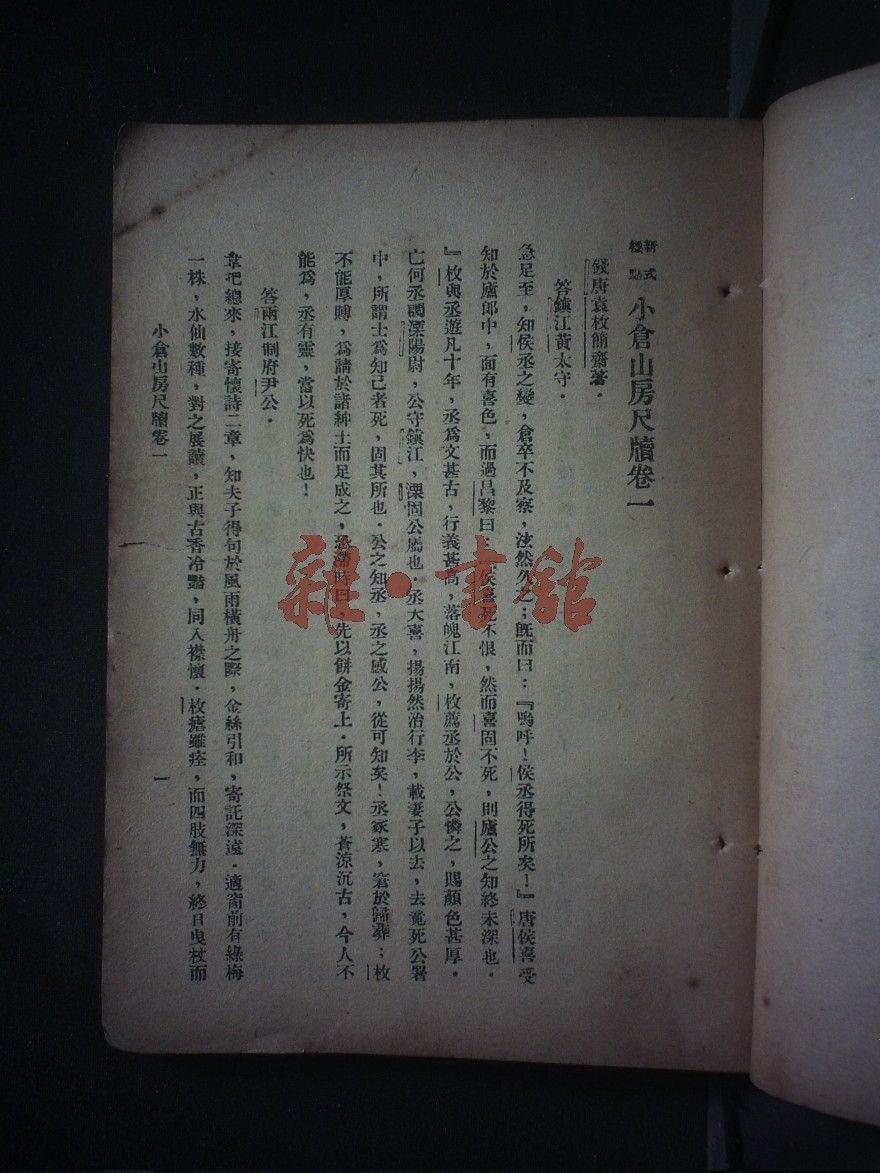 新式標點 小倉山房尺牘卷一
錢唐袁枚簡齋著．
答鎮江黃太守．
急足至，知侯丞之變，倉卒不及察，泫然久之；既而曰：『嗚呼！侯丞得死所矣！』唐侯喜受
知於盧郎中，面有喜色，而過昌黎曰：侯喜死不恨，然而喜固不死，則盧公之知終未深也．
』枚與丞遊凡十年，丞爲文甚古，行義甚高，落魄江南，枚薦丞於公，公憐之，賜顏色甚厚．
亡何丞調溧陽尉，公守鎮江，溧固公屬也．丞大喜，揚揚然治行李，載妻子以去，去竟死公署
中，所謂士爲知己者死，固其所也．公之知丞，丞之感公，從可知矣！丞家寒，窘於歸葬；枚
不能厚賻，爲請於諸紳士而足成之，恐濡時日，先以餅金寄上．所示祭文，蒼涼沉古，今人不
能爲，丞有靈，當以死爲快也！
答兩江制府尹公．
韋把總來，接寄懷詩二章，知夫子得句於風雨橫舟之際，金絲引和，寄託深遠．適窗前有綠梅
一株，水仙數種，對之展讀，正與古香冷豔，同入襟懷．枚瘧雖痊，而四肢無力，終日曳杖而
小倉山房尺牘卷一
一
雜·書館